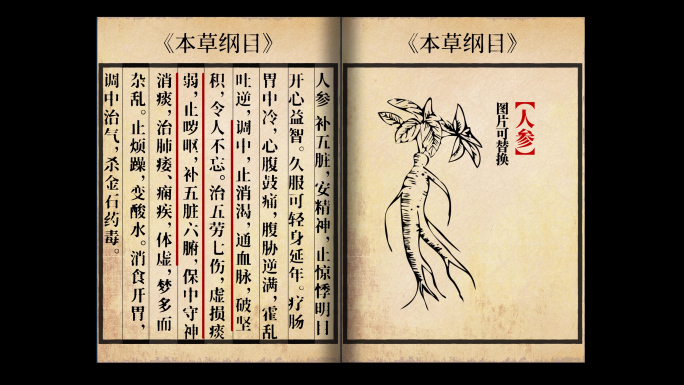 《本草纲目》
人参 补五脏，安精神，止惊悸明目
开心益智。久服可轻身延年。疗肠
胃中冷，心腹鼓痛，胸胁逆满，霍乱
吐逆，调中，止消渴，通血脉，破坚
积，令人不忘。治五劳七伤，虚损痰
弱，止哕呕，补五脏六腑，保中守神
消痰，治肺痿、痫疾，体虚，梦多而
杂乱。止烦躁，变酸水。消食开胃，
调中治气，杀金石药毒。
《本草纲目》
【人参】
图片可替换